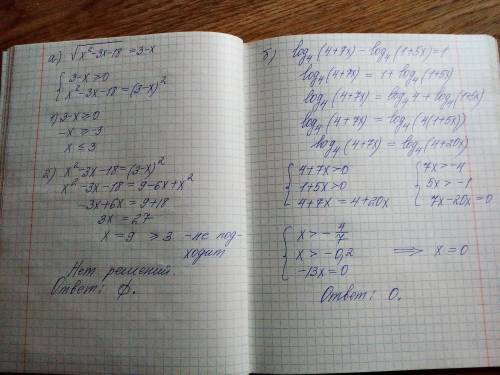 а) √x²-3x-18 = 3-x
{ 3-x ≥ 0
x²-3x-18 = (3-x)²
1) 3-x ≥ 0
-x ≥ -3
x ≤ 3
2) x²-3x-18 = (3-x)²
x²-3x-18 = 9-6x+x²
-3x+6x = 9+18
3x = 27
x = 9 ≥ 3 - не под-
ходит
Нет решений.
Ответ: ∅.
б) log₄(4+7x) - log₄(1+5x) = 1
log₄(4+7x) = 1 + log₄(1+5x)
log₄(4+7x) = log₄4 + log₄(1+5x)
log₄(4+7x) = log₄(4(1+5x))
log₄(4+7x) = log₄(4+20x)
{ 4+7x>0 { 7x>-4
1+5x>0 5x>-1
4+7x = 4+20x 7x-20x = 0
{ x > -4/7
x > -0,2 ⟹ x = 0
-13x = 0
Ответ: 0.